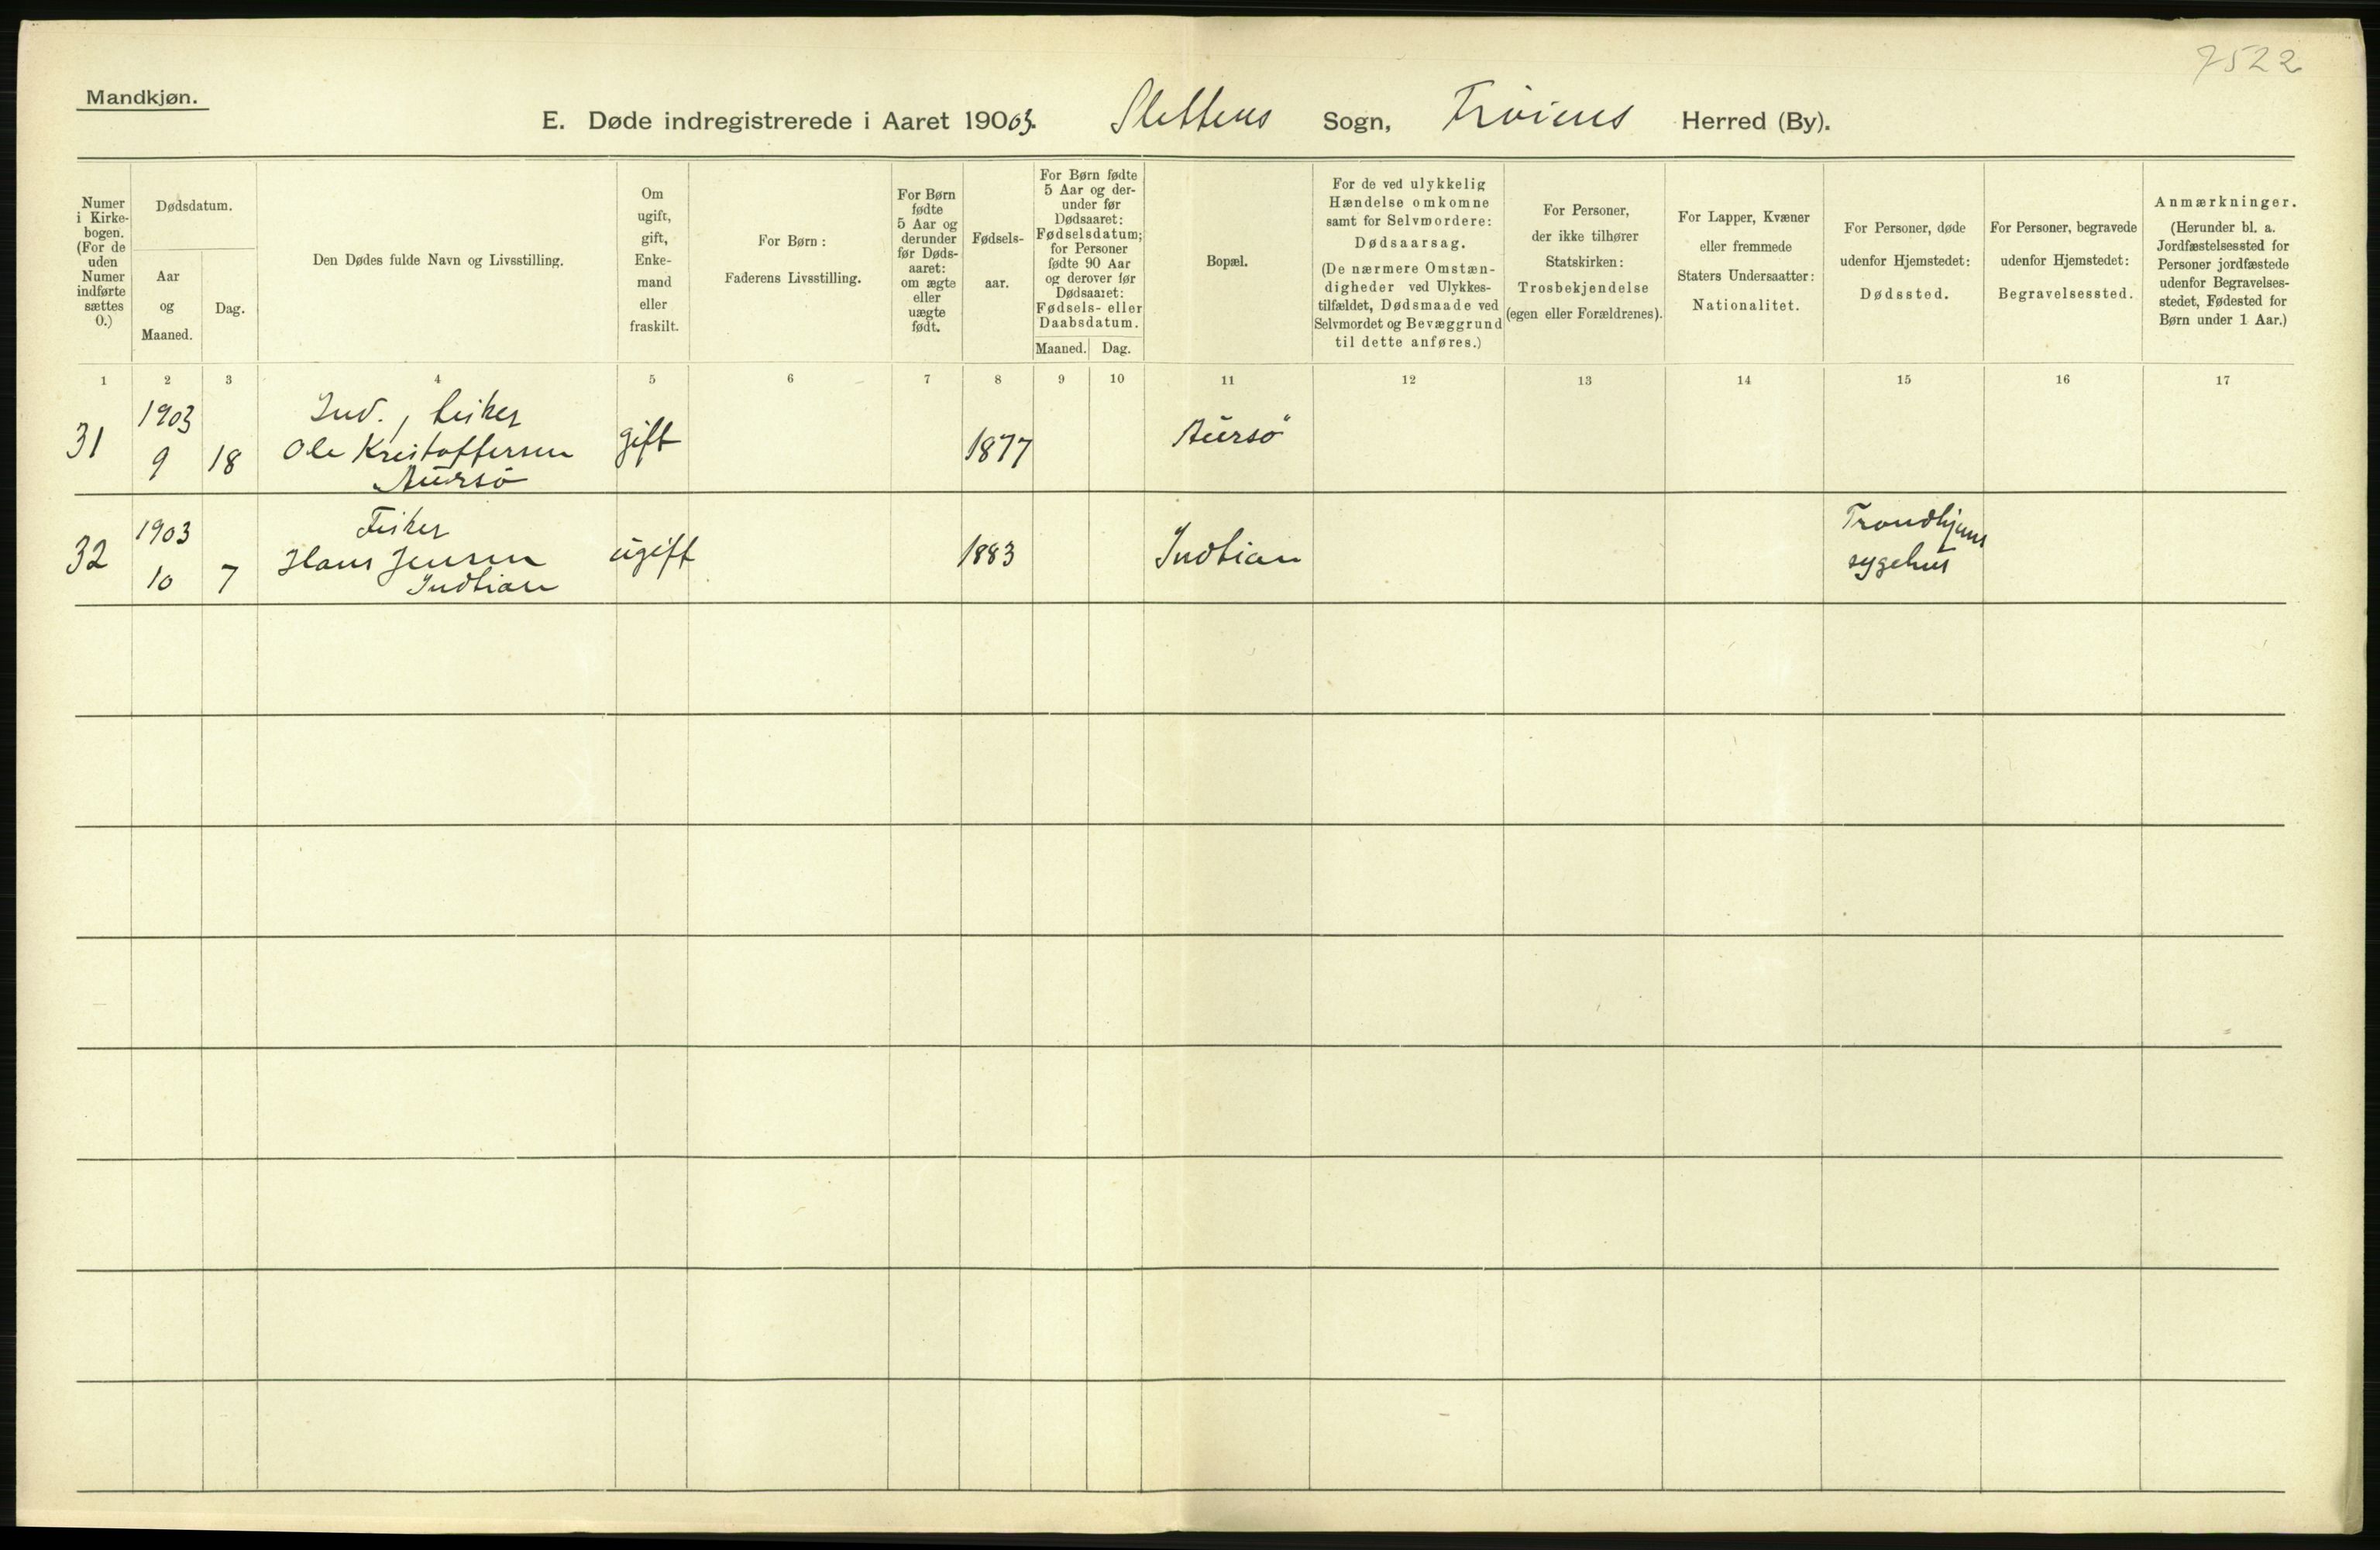 7522
Mandkjøn.
E. Døde indregistrerede i Aaret 19003. Slettens Sogn, Frøiens Herred (By).
Numer
i Kirke-
bogen.
(For de
uden
Numer
indførte
sættes
0.)
Dødsdatum.
Aar
og
Maaned.
Dag.
Den Dødes fulde Navn og Livsstilling.
Om
ugift,
gift,
Enke-
mand
eller
fraskilt.
For Børn:
Faderens Livsstilling.
For Børn
fødte
5 Aar og
derunder
før Døds-
aaret:
om ægte
eller
uægte
født.
Fødsels-
aar.
For Børn fødte
5 Aar og der-
under før
Dødsaaret:
Fødselsdatum;
for Personer
fødte 90 Aar
og derover før
Dødsaaret:
Fødsels- eller
Daabsdatum.
Maaned. Dag.
Bopæl.
For de ved ulykkelig
Hændelse omkomne
samt for Selvmordere:
Dødsaarsag.
(De nærmere Omstæn-
digheder ved Ulykkes-
tilfældet, Dødsmaade ved
Selvmordet og Bevæggrund
til dette anføres.)
For Personer,
der ikke tilhører
Statskirken:
Trosbekjendelse
(egen eller Forældrenes).
For Lapper, Kvæner
eller fremmede
Staters Undersaatter:
Nationalitet.
For Personer, døde
udenfor Hjemstedet:
Dødssted.
For Personer, begravede
udenfor Hjemstedet:
Begravelsessted.
Anmærkninger.
(Herunder bl. a.
Jordfæstelsessted for
Personer jordfæstede
udenfor Begravelses-
stedet, Fødested for
Børn under 1 Aar.)
1 2 3 4 5 6 7 8 9 10 11 12 13 14 15 16 17
31
1903
9
18
Ind., fisker
Ole Kristoffersen
Aursø
gift
1877
Aursø
32
1903
10
7
Fisker
Hans Jensen
Indtian
ugift
1883
Indtian
Trondhjems
sygehus